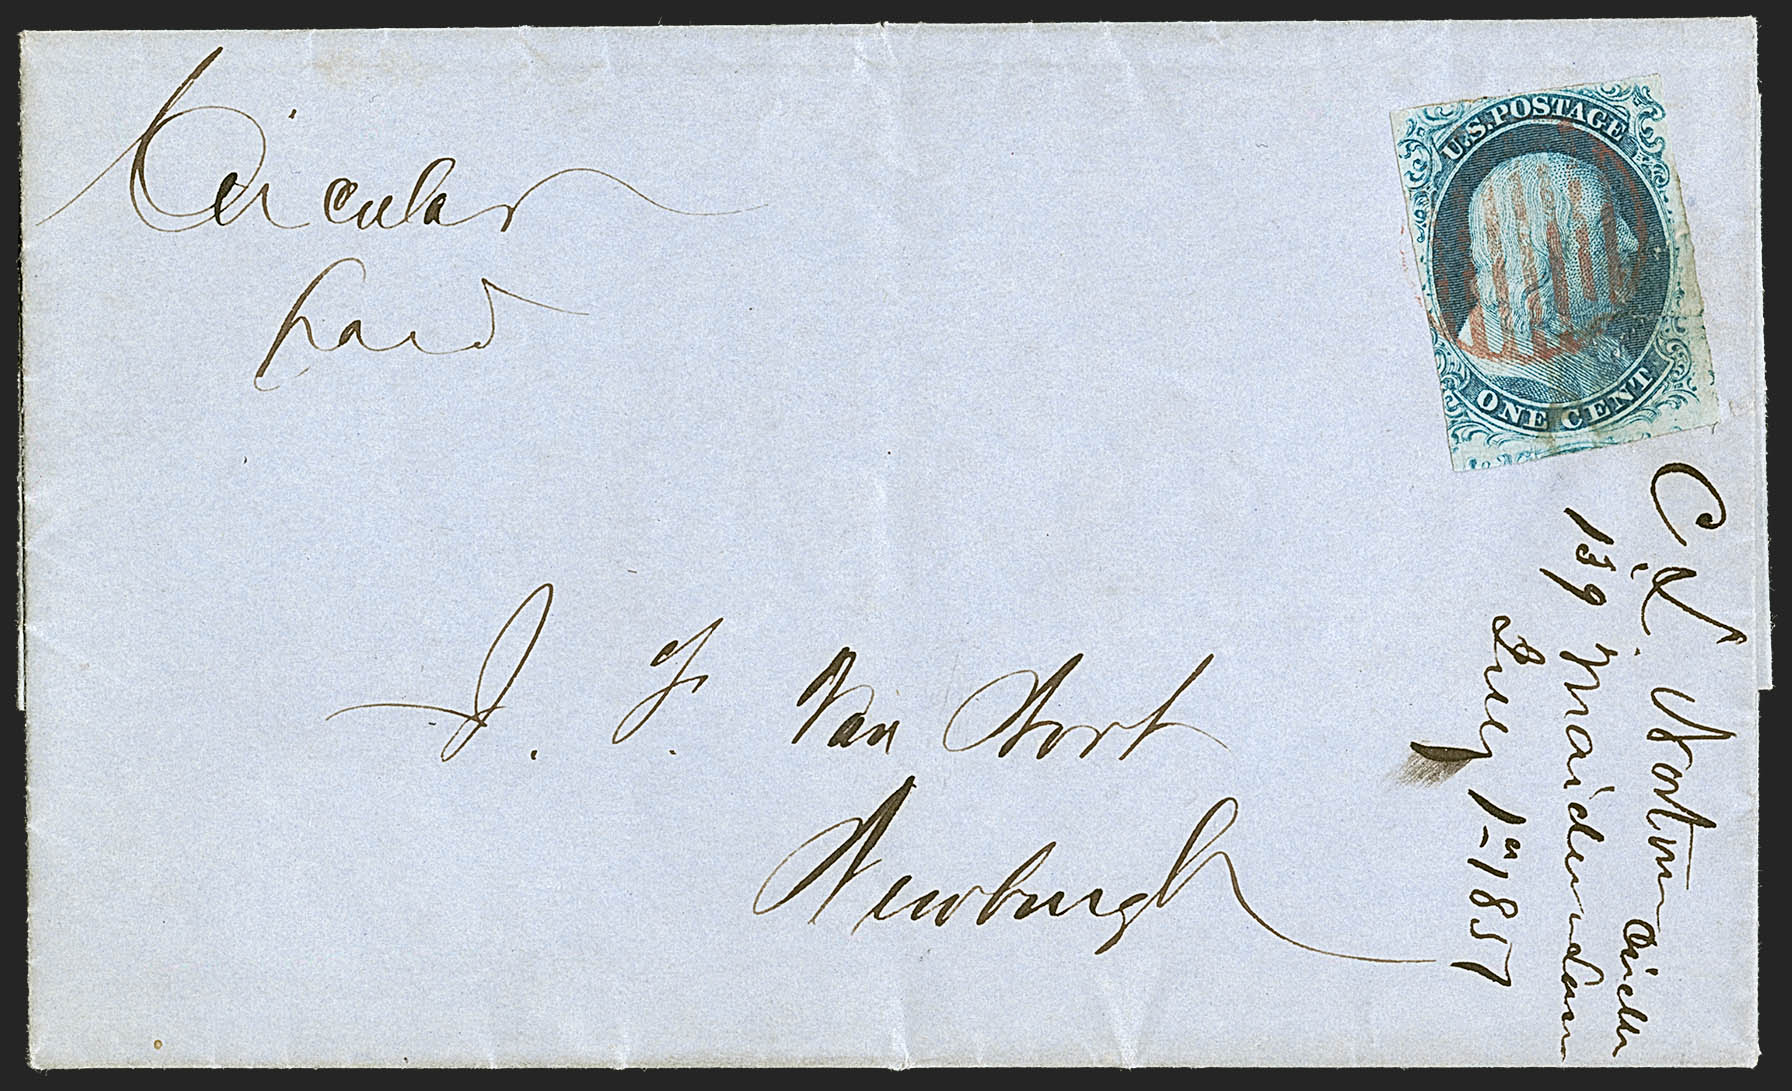 Circular
Paid
U.S. POSTAGE
ONE CENT
J. F. Van Nort
Newburgh
C. L. Norton Circular
139 Maiden Lane
July 1st 1857